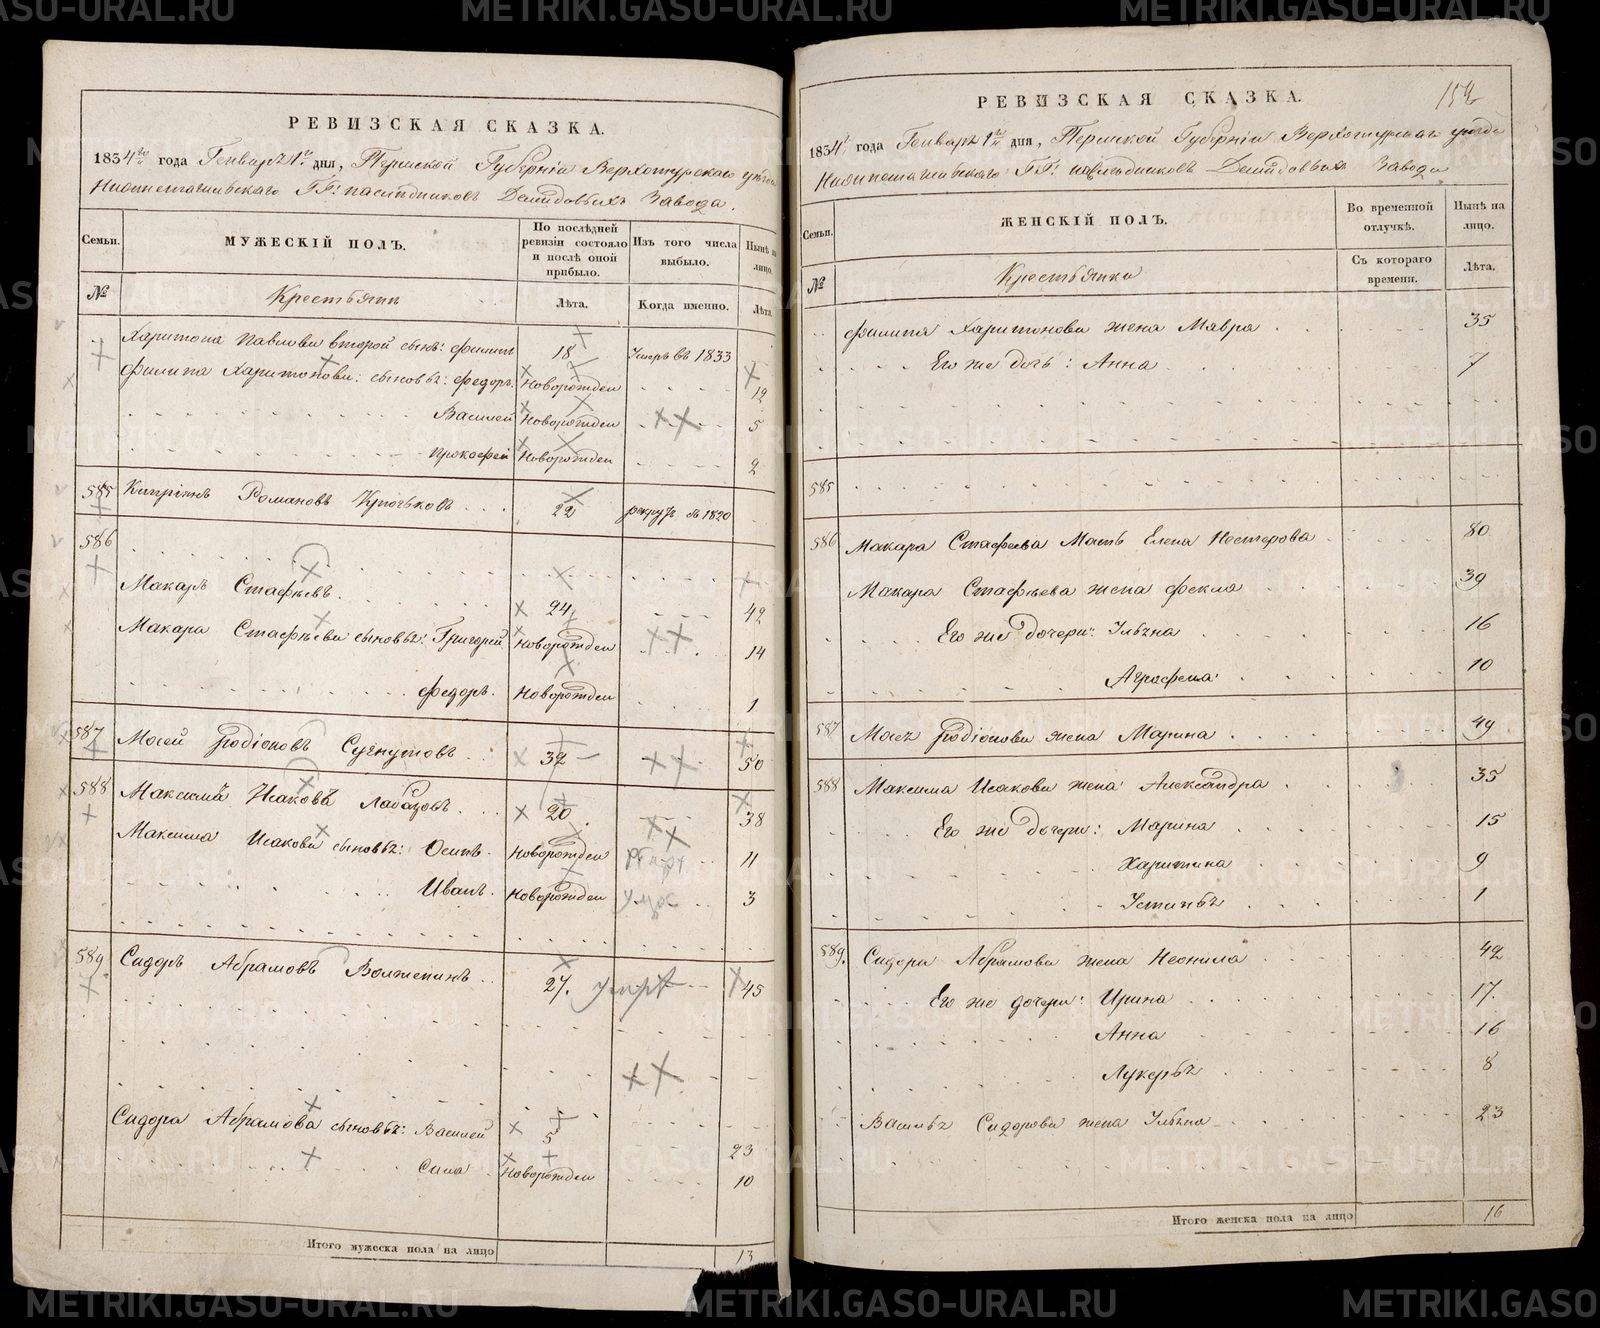 METRIKI.GASO-URAL.RU
РЕВИЗСКАЯ СКАЗКА.
1834го года Генваря 1го дня, Пермской Губерніи Верхотурскаго уезда
Нижнетагильскаго ГГ: наследниковъ Демидовыхъ Завода.
Семьи.
МУЖЕСКІЙ ПОЛЪ.
По послѣдней ревизіи состояло и послѣ оной прибыло.
Изъ того числа выбыло.
Нынѣ на лицо.
№
Крестьяни
Лѣта.
Когда именно.
Лѣта.
Харитона Павлова второй сынъ: Филипъ 18 Умръ въ 1833
Филипа Харитонова: сыновья: Федоръ. Новорожден 12
Василей Новорожден 5
Прокофей Новорожден 2
585 Кипріянъ Романовъ Крючьковъ 22 рекрут. въ 1820
586
Макаръ Стафѣевъ. 24 42
Макара Стафѣева сыновья: Григорей Новорожден 14
Федоръ. Новорожден 1
587 Мосей Родіоновъ Сучнутовъ 32 50
588 Максимъ Исаковъ 20 38
Максима Исакова сыновья: Осипъ. Новорожден 11
Иванъ. Новорожден 3
589 Сидоръ Абрамовъ Волженинъ 27. 45
Сидора Абрамова сыновья: Василей 5 23
Сила Новорожден 10
Итого мужеска пола на лицо 13
РЕВИЗСКАЯ СКАЗКА.
1834 года Генваря 1го дня, Пермской Губерніи Верхотурскаго уезда
Нижнетагильскаго ГГ: наследниковъ Демидовыхъ Завода
Семьи.
ЖЕНСКІЙ ПОЛЪ.
Во временной отлучкѣ.
Нынѣ на лицо.
№
Крестьянки
Съ котораго времени.
Лѣта.
Филипа Харитонова жена Мавра 35
Его же дочь: Анна 7
585
586 Макара Стафѣева Мать Елена Нестерова 80
Макара Стафѣева жена Фекла 39
Его же дочери: Ульяна 16
Аграфена 10
587 Мосея Родіонова жена Марина 49
588 Максима Исакова жена Александра 35
Его же дочери: Марина 15
Харитина 9
Устинья 1
589. Сидора Абрамова жена Неонила 42
Его же дочери: Ирина 17.
Анна 16
Лукерья 8
Василья Сидорова жена Ульяна 23
Итого женска пола на лицо 16